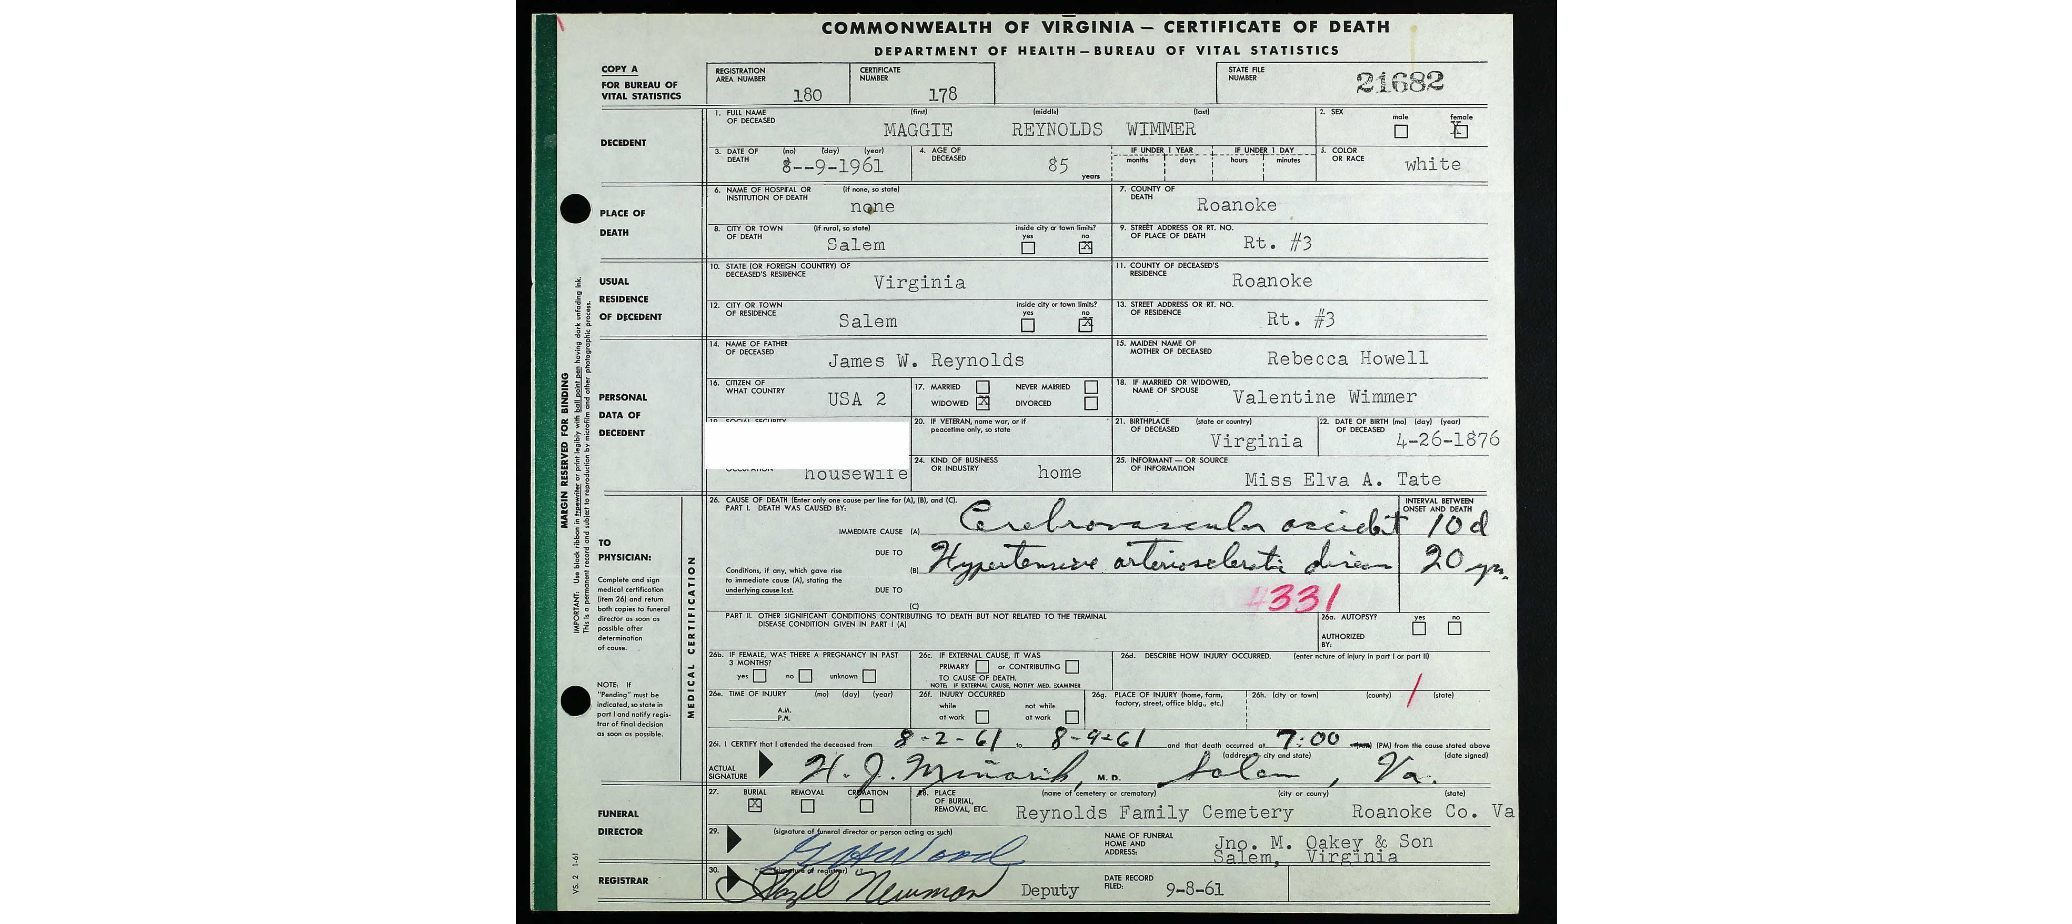 COMMONWEALTH OF VIRGINIA — CERTIFICATE OF DEATH
DEPARTMENT OF HEALTH — BUREAU OF VITAL STATISTICS
COPY A
FOR BUREAU OF
VITAL STATISTICS
REGISTRATION
AREA NUMBER 180
CERTIFICATE
NUMBER 178
STATE FILE
NUMBER 21682
DECEDENT
1. FULL NAME OF DECEASED (first) (middle) (last)
MAGGIE REYNOLDS WIMMER
2. SEX male female X
3. DATE OF DEATH (mo) (day) (year) 8--9-1961
4. AGE OF DECEASED 85 years
IF UNDER 1 YEAR months days
IF UNDER 1 DAY hours minutes
5. COLOR OR RACE white
PLACE OF DEATH
6. NAME OF HOSPITAL OR INSTITUTION OF DEATH (if none, so state) none
7. COUNTY OF DEATH Roanoke
8. CITY OR TOWN OF DEATH (if rural, so state) Salem
inside city or town limits? yes no X
9. STREET ADDRESS OR RT. NO. OF PLACE OF DEATH Rt. #3
USUAL RESIDENCE OF DECEDENT
10. STATE (OR FOREIGN COUNTRY) OF DECEASED'S RESIDENCE Virginia
11. COUNTY OF DECEASED'S RESIDENCE Roanoke
12. CITY OR TOWN OF RESIDENCE Salem
inside city or town limits? yes no X
13. STREET ADDRESS OR RT. NO. OF RESIDENCE Rt. #3
PERSONAL DATA OF DECEDENT
14. NAME OF FATHER OF DECEASED James W. Reynolds
15. MAIDEN NAME OF MOTHER OF DECEASED Rebecca Howell
16. CITIZEN OF WHAT COUNTRY USA 2
17. MARRIED NEVER MARRIED
WIDOWED X DIVORCED
18. IF MARRIED OR WIDOWED, NAME OF SPOUSE Valentine Wimmer
19. SOCIAL SECURITY
20. IF VETERAN, name war, or if peacetime only, so state
21. BIRTHPLACE OF DECEASED (state or country) Virginia
22. DATE OF BIRTH OF DECEASED (mo) (day) (year) 4-26-1876
OCCUPATION housewife
24. KIND OF BUSINESS OR INDUSTRY home
25. INFORMANT — OR SOURCE OF INFORMATION Miss Elva A. Tate
MARGIN RESERVED FOR BINDING
IMPORTANT: Use black ribbon in typewriter or print legibly with ball point pen having dark unfading ink.
This is a permanent record and subject to reproduction by microfilm and other photographic process.
TO PHYSICIAN:
Complete and sign
medical certification
(item 26) and return
both copies to funeral
director as soon as
possible after
determination
of cause.
NOTE: If
"Pending" must be
indicated, so state in
part I and notify regis-
trar of final decision
as soon as possible.
MEDICAL CERTIFICATION
26. CAUSE OF DEATH (Enter only one cause per line for (A), (B), and (C).
PART I. DEATH WAS CAUSED BY:
INTERVAL BETWEEN
ONSET AND DEATH
IMMEDIATE CAUSE (A) Cerebrovascular accident 10 d
DUE TO
(B) Hypertensive arteriosclerotic disease 20 yrs.
Conditions, if any, which gave rise
to immediate cause (A), stating the
underlying cause last.
DUE TO
(C)
4331
PART II. OTHER SIGNIFICANT CONDITIONS CONTRIBUTING TO DEATH BUT NOT RELATED TO THE TERMINAL
DISEASE CONDITION GIVEN IN PART I (A)
26a. AUTOPSY? yes no
AUTHORIZED
BY:
26b. IF FEMALE, WAS THERE A PREGNANCY IN PAST
3 MONTHS?
yes no unknown
26c. IF EXTERNAL CAUSE, IT WAS
PRIMARY or CONTRIBUTING
TO CAUSE OF DEATH.
NOTE: IF EXTERNAL CAUSE, NOTIFY MED. EXAMINER
26d. DESCRIBE HOW INJURY OCCURRED. (enter nature of injury in part I or part II)
26e. TIME OF INJURY (mo) (day) (year)
A.M.
P.M.
26f. INJURY OCCURRED
while at work not while at work
26g. PLACE OF INJURY (home, farm,
factory, street, office bldg., etc.)
26h. (city or town) (county) (state)
26i. I CERTIFY that I attended the deceased from 8-2-61 to 8-9-61 and that death occurred at 7:00 (PM) from the cause stated above
(address, city and state) (date signed)
ACTUAL
SIGNATURE H. J. Minarik, M. D. Salem, Va.
FUNERAL DIRECTOR
27. BURIAL X REMOVAL CREMATION
28. PLACE OF BURIAL, REMOVAL, ETC. (name of cemetery or crematory) (city or county) (state)
Reynolds Family Cemetery Roanoke Co. Va
29. (signature of funeral director or person acting as such)
NAME OF FUNERAL
HOME AND
ADDRESS:
Jno. M. Oakey & Son
Salem, Virginia
REGISTRAR
30. (signature of registrar)
Hazel Newman Deputy
DATE RECORD
FILED: 9-8-61
VS. 2 1-61